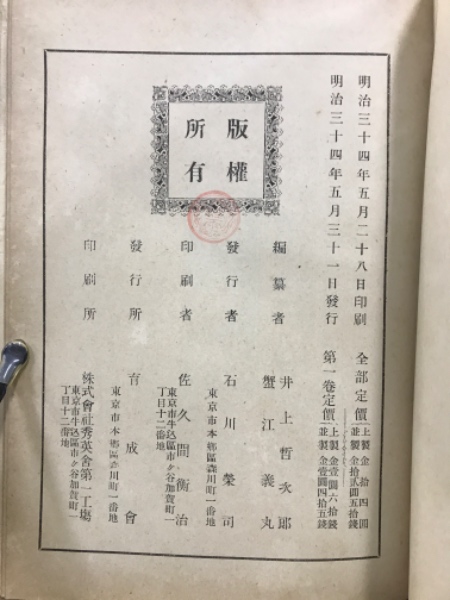 明治三十四年五月二十八日印刷
明治三十四年五月三十一日發行
全部定價
上製金拾四圓
並製金拾貳圓五拾錢
第一卷定價
上製金壹圓六拾錢
並製金壹圓四拾五錢
版權
所有
編纂者
井上哲次郎
蟹江義丸
發行者
石川榮司
東京市本鄉區森川町一番地
印刷者
佐久間衡治
東京市牛込區市ケ谷加賀町一
丁目十二番地
發行所
育成會
東京市本鄉區森川町一番地
印刷所
株式會社秀英舍第一工場
東京市牛込區市ケ谷加賀町一
丁目十二番地